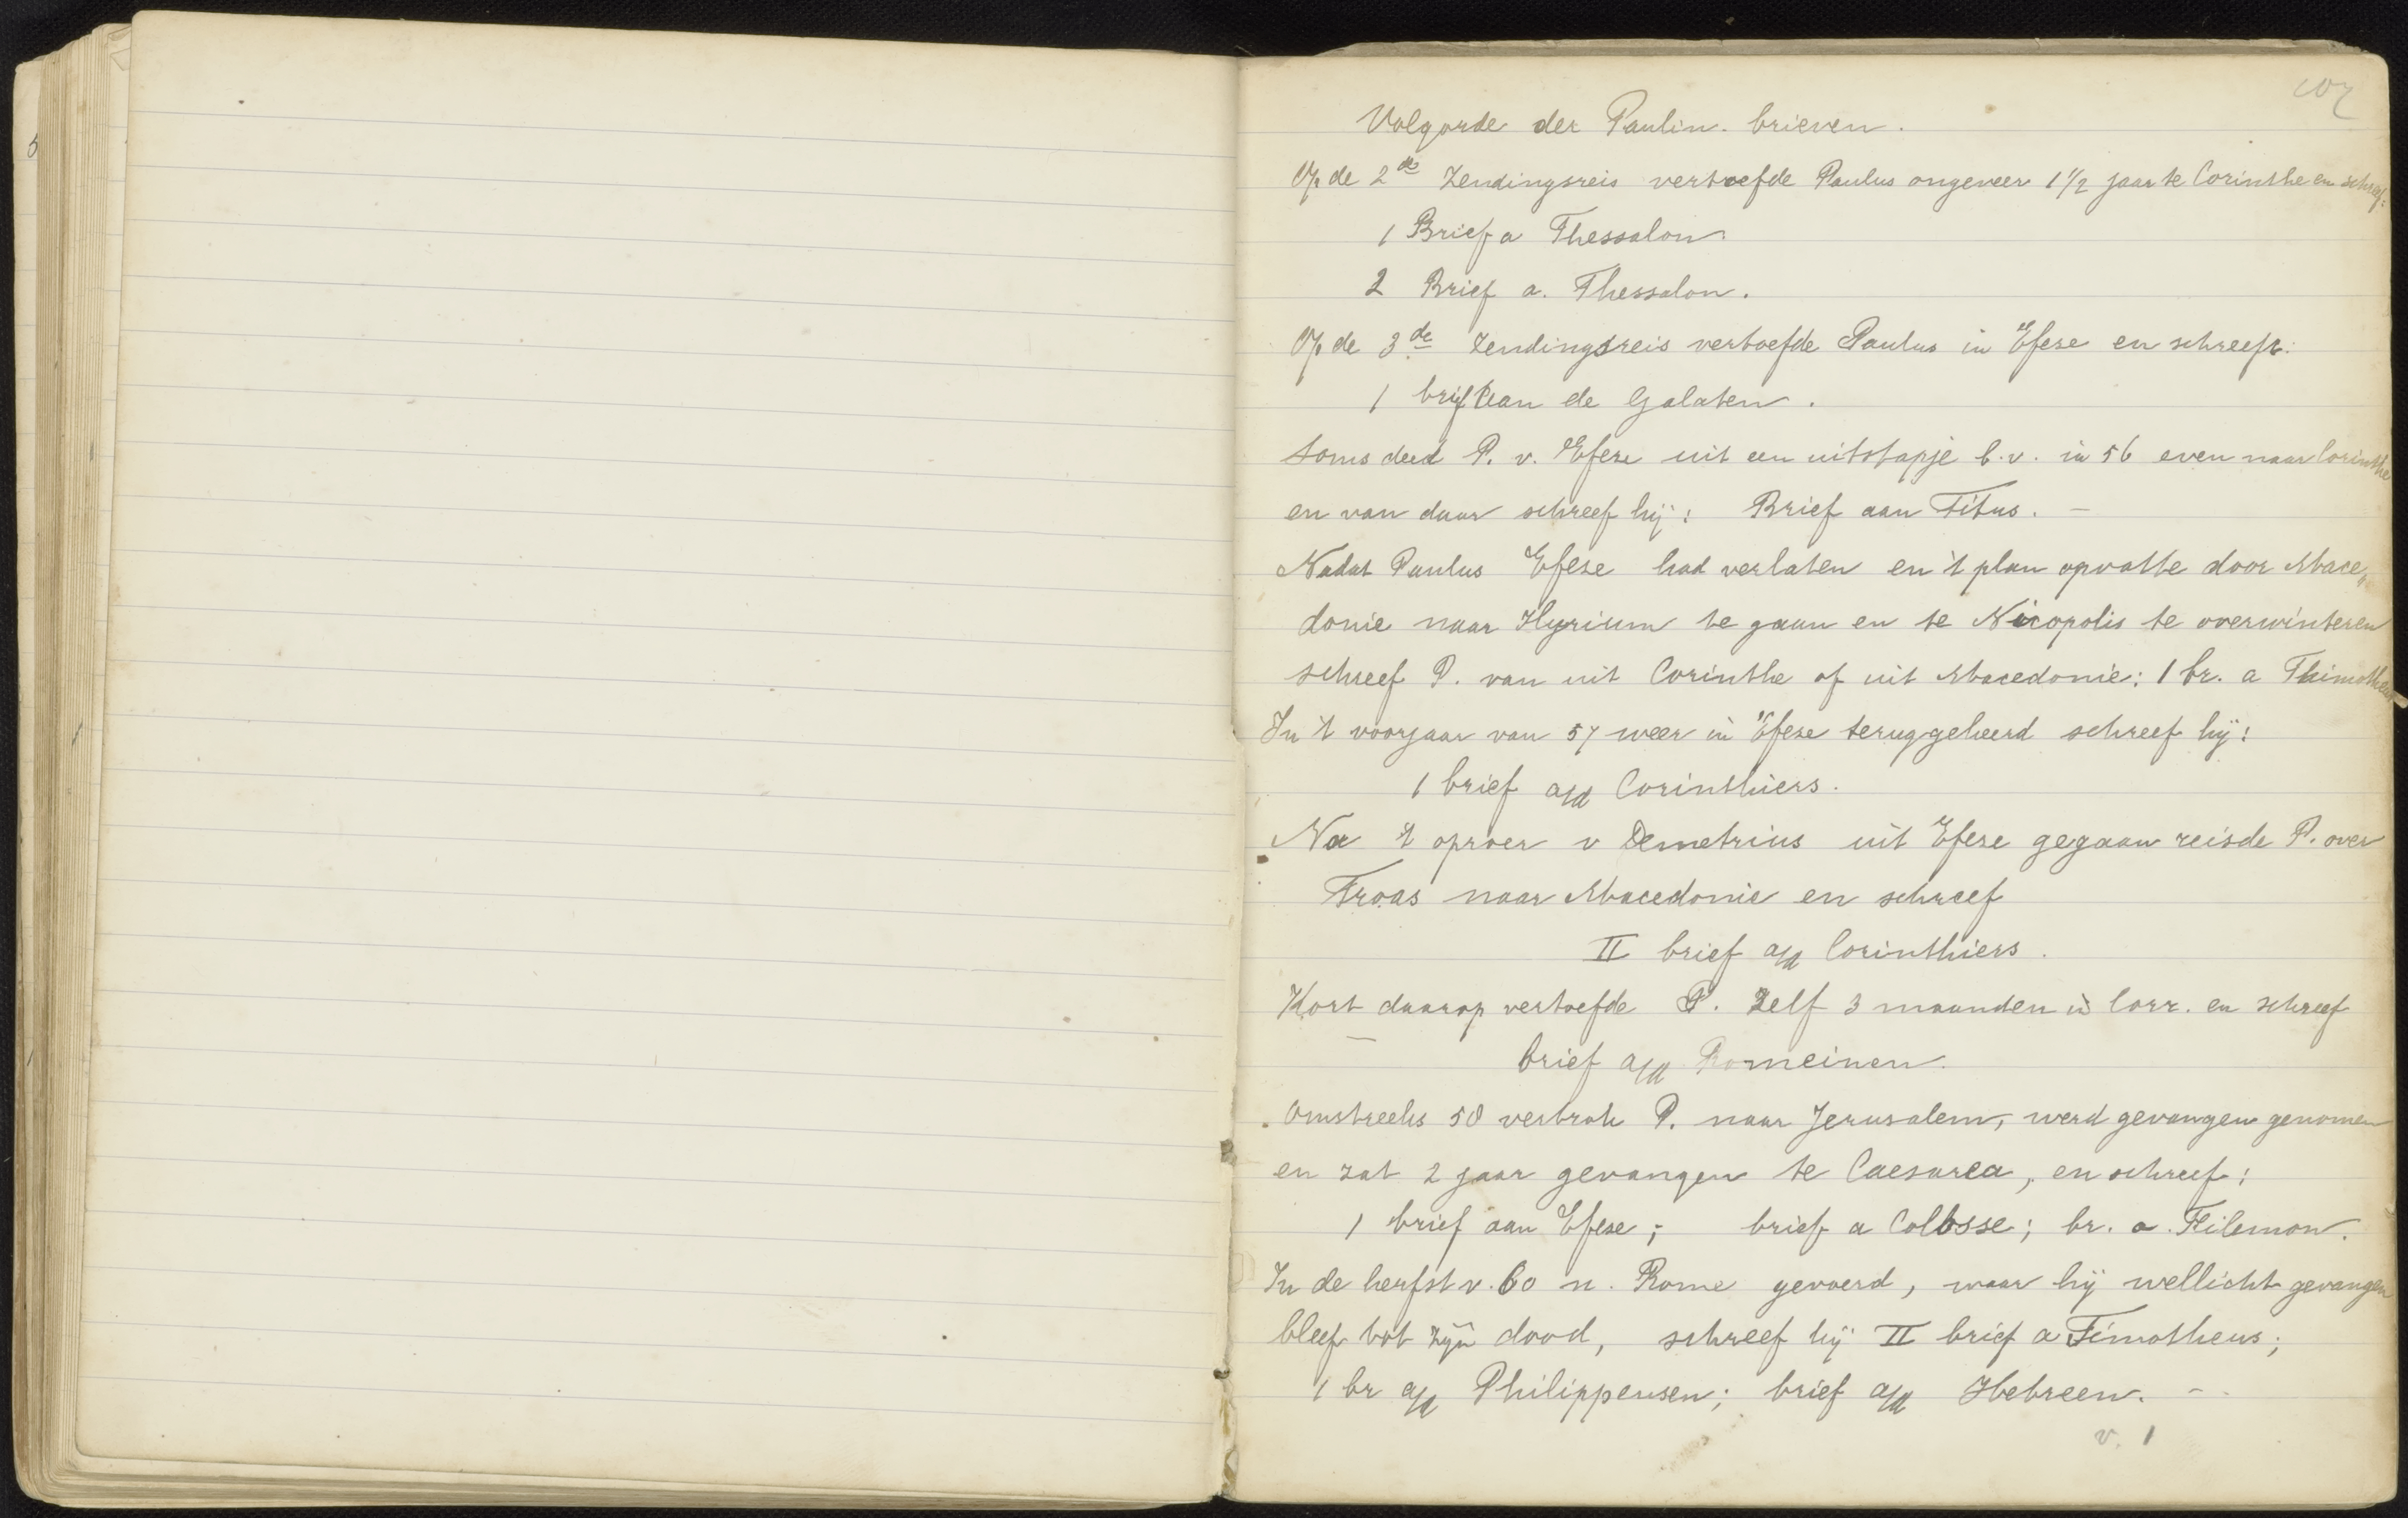 107
Volgorde der Paulin. brieven.
Op de 2de Zendingsreis vertoefde Paulus ongeveer 1 1/2 jaar te Corinthe en schreef:
1 Brief a Thessalon.
2 Brief a. Thessalon.
Op de 3de Zendingsreis vertoefde Paulus in Efese en schreef:
1 brief aan de Galaten.
Soms deed P. v. Efese uit een uitstapje b.v. in 56 even naar Corinthe
en van daar schreef hij: Brief aan Titus. -
Nadat Paulus Efese had verlaten en 't plan opvatte door Mace-
donie naar Illyrium te gaan en te Nicopolis te overwinteren
schreef P. van uit Corinthe of uit Macedonie: 1 br. a Thimotheus
In 't voorjaar van 57 weer in Efese teruggekeerd schreef hij:
1 brief a/d Corinthiers.
Na 't oproer v Demetrius uit Efese gegaan reisde P. over
Troas naar Macedonie en schreef
II brief a/d Corinthiers.
Kort daarop vertoefde P. Zelf 3 maanden in Corr. en schreef
brief a/d Romeinen.
Omstreeks 58 vertrok P. naar Jerusalem, werd gevangen genomen
en zat 2 jaar gevangen te Caesarea, en schreef:
1 brief aan Efese; brief a Colosse; br. a. Filemon.
In de herfst v. 60 n. Rome gevoerd, waar hij wellicht gevangen
bleef tot zijn dood, schreef hij II brief a Timotheus;
1 br a/d Philippensen; brief a/d Hebreen. -
v. 1